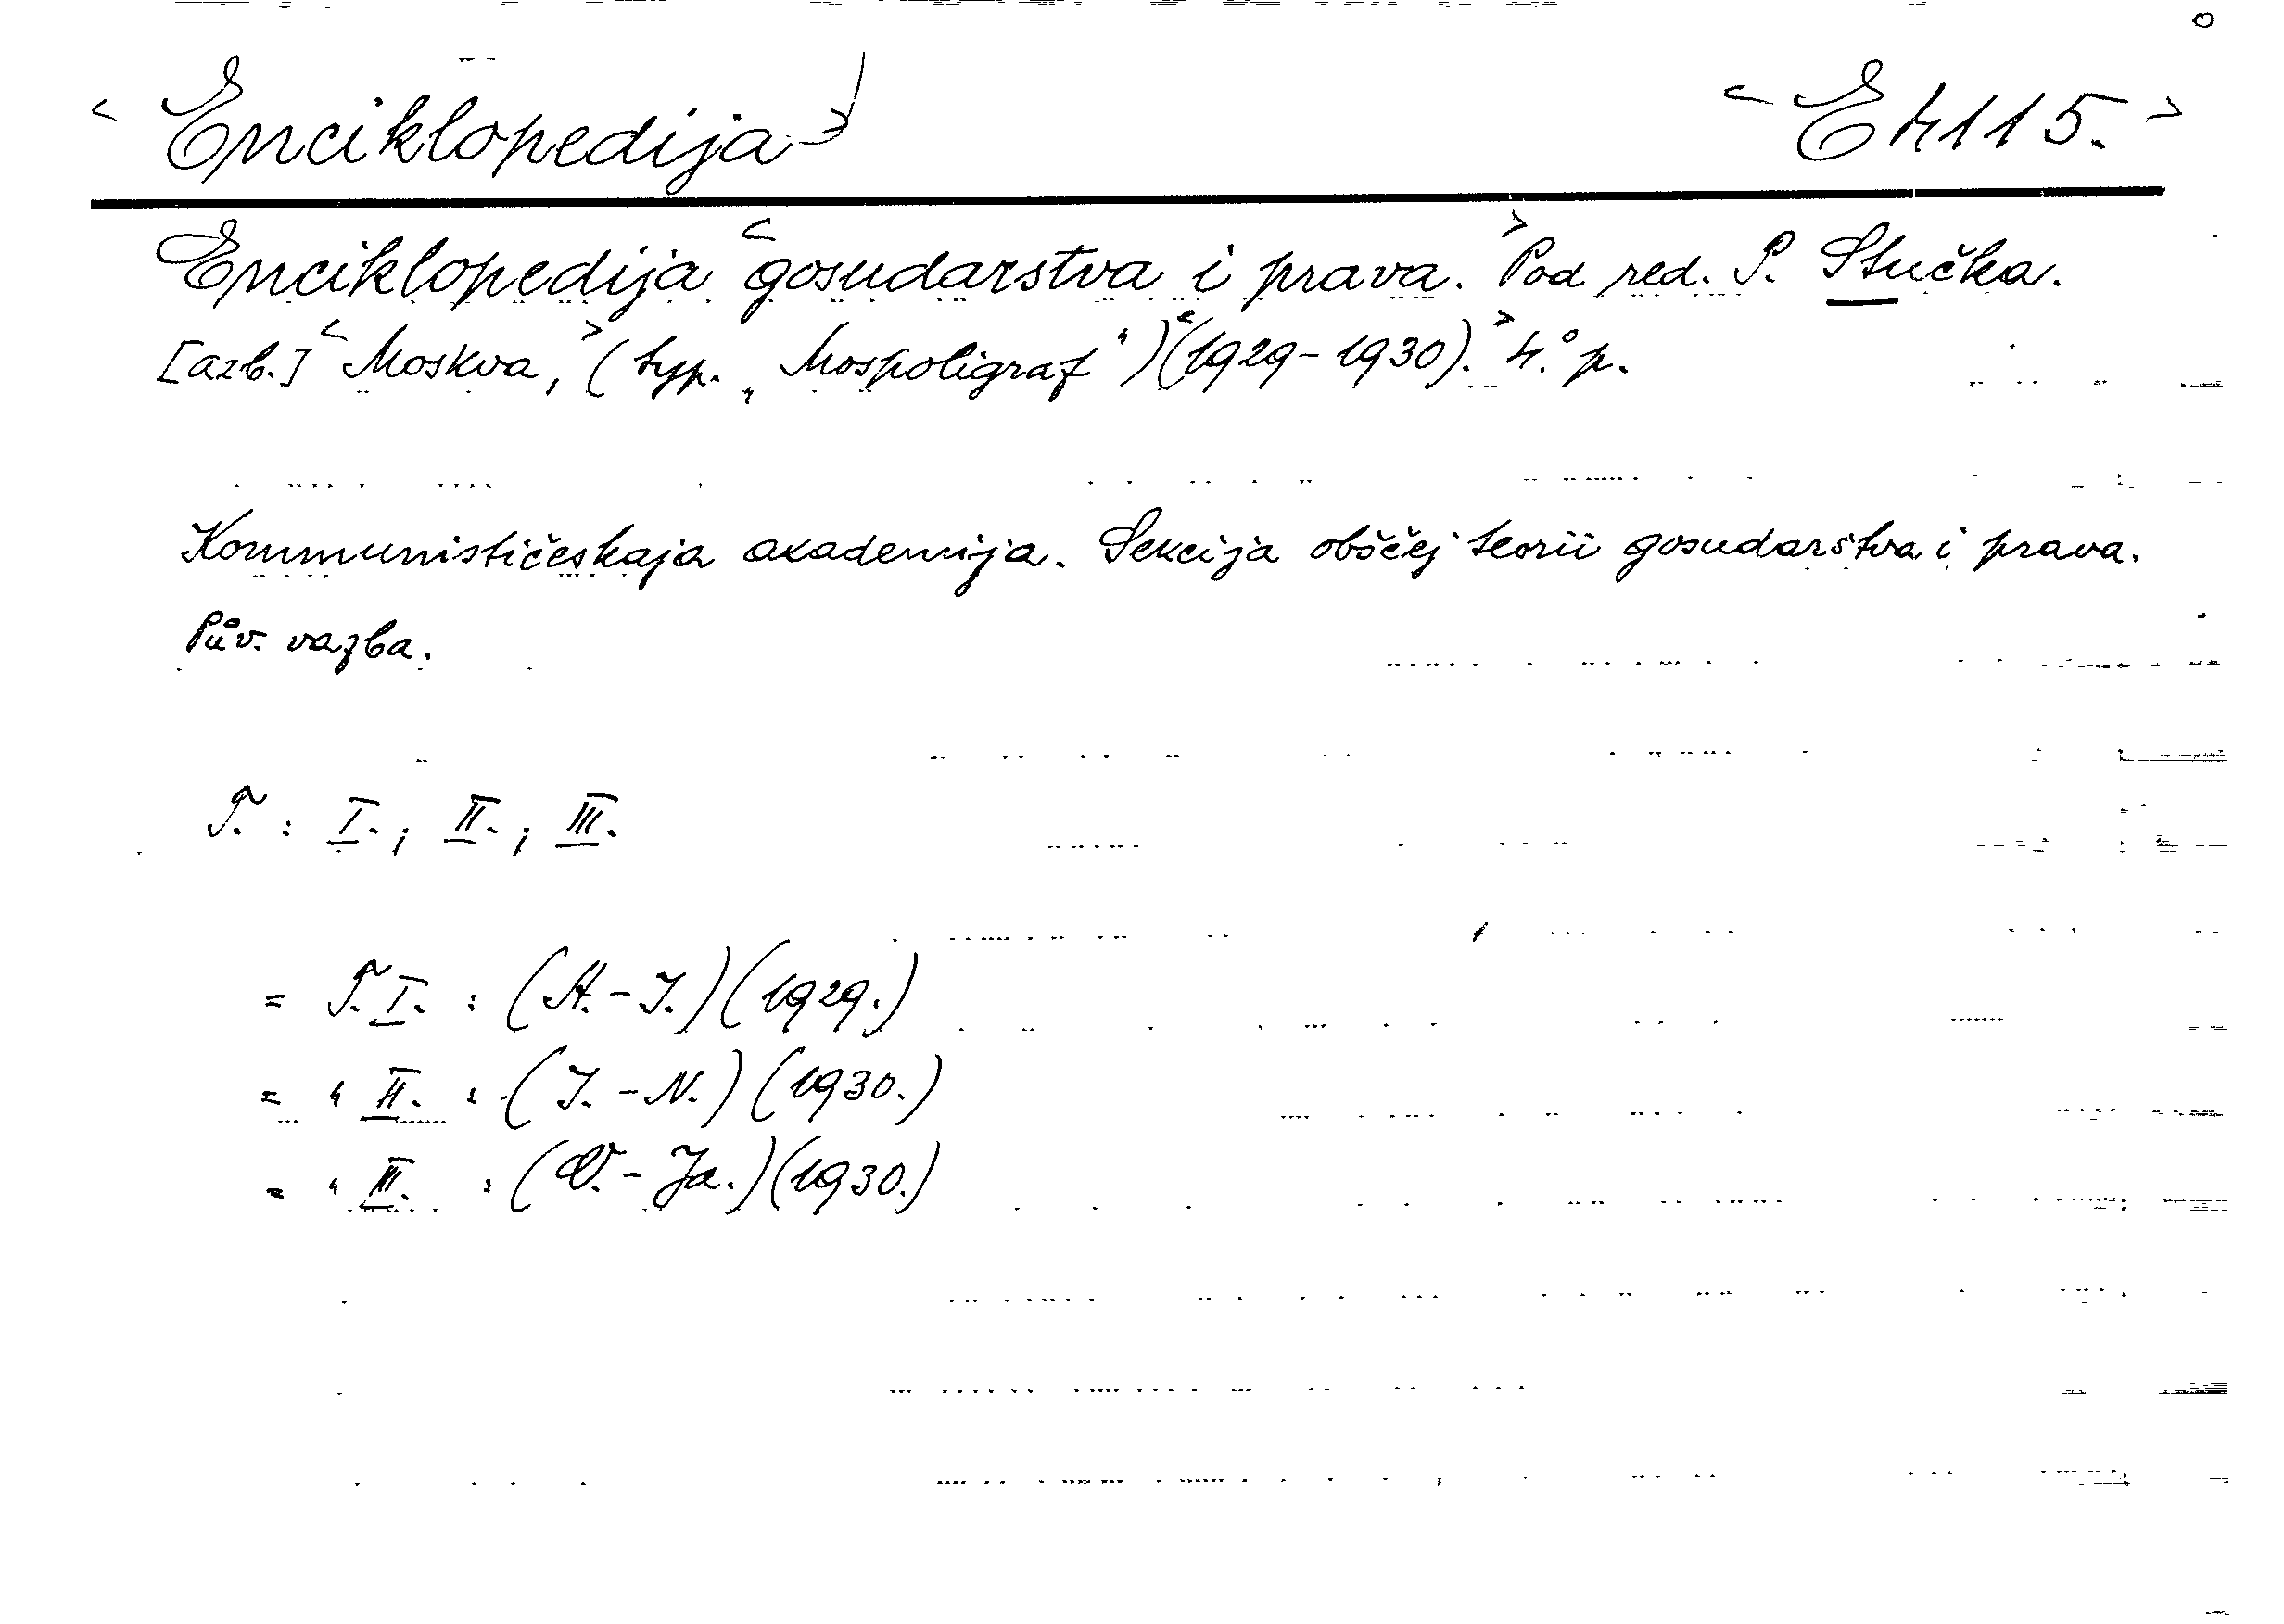 < Enciklopedija > < E 4115. >
Enciklopedija < gosudarstva i prava. > Pod red. P. Stučka.
[azb.] < Moskva, > (typ. „Mospoligraf“) < (1929-1930). > 4.° p.
Kommunističeskaja akademija. Sekcija obščej teorii gosudarstva i prava.
Pův. vazba.
T. : I. ; II. ; III.
= T. I. : (A. - I.) (1929.)
= " II. : (I. - N.) (1930.)
= " III. : (O. - Ja.) (1930.)